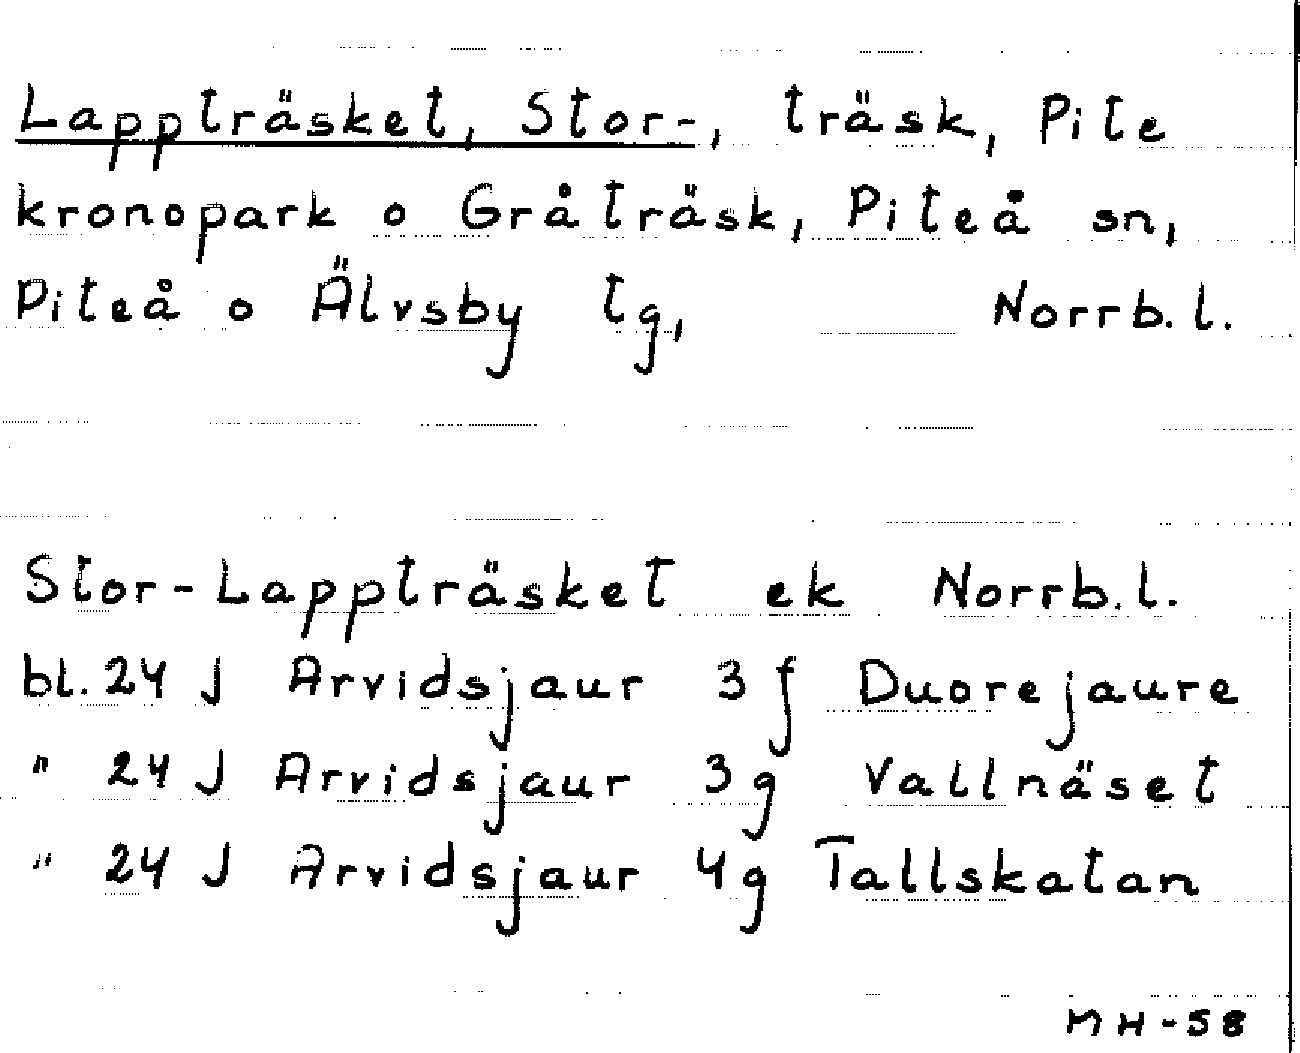 Lappträsket, Stor-, träsk, Pite
kronopark o Gråträsk, Piteå sn,
Piteå o Älvsby tg, Norrb.l.
Stor-Lappträsket ek Norrb.l.
bl. 24 J Arvidsjaur 3 f Duorejaure
" 24 J Arvidsjaur 3g Vallnäset
" 24 J Arvidsjaur 4g Tallskatan
MH-58